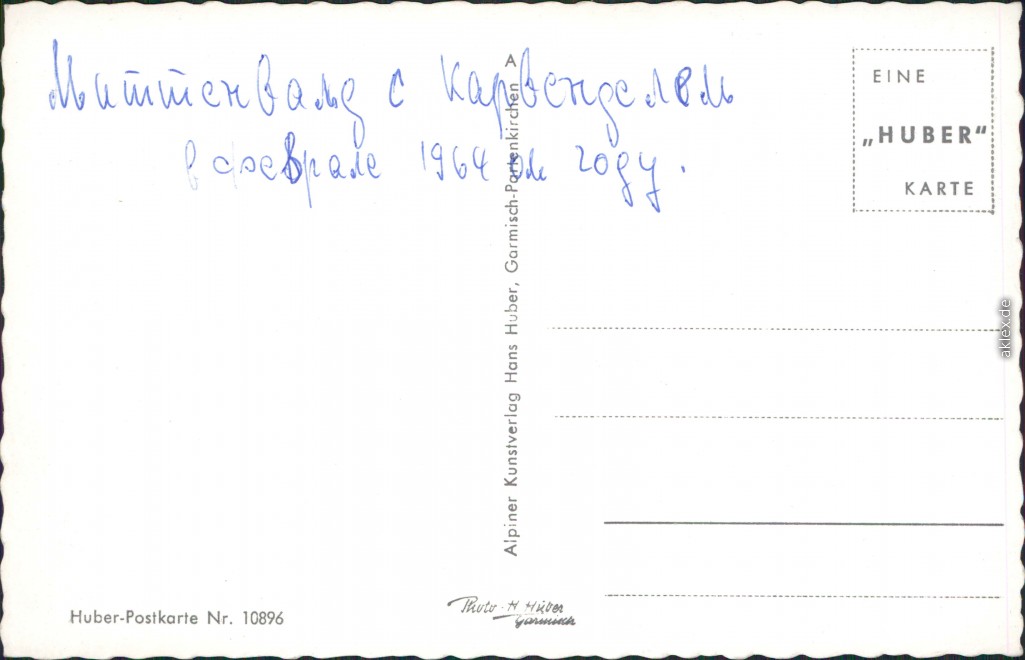 Миттенвалд с Карвенделем
в феврале 1964 ом году.
EINE
„HUBER“
KARTE
Alpiner Kunstverlag Hans Huber, Garmisch-Partenkirchen A
Huber-Postkarte Nr. 10896
Photo-H. Huber
Garmisch
aklex.de